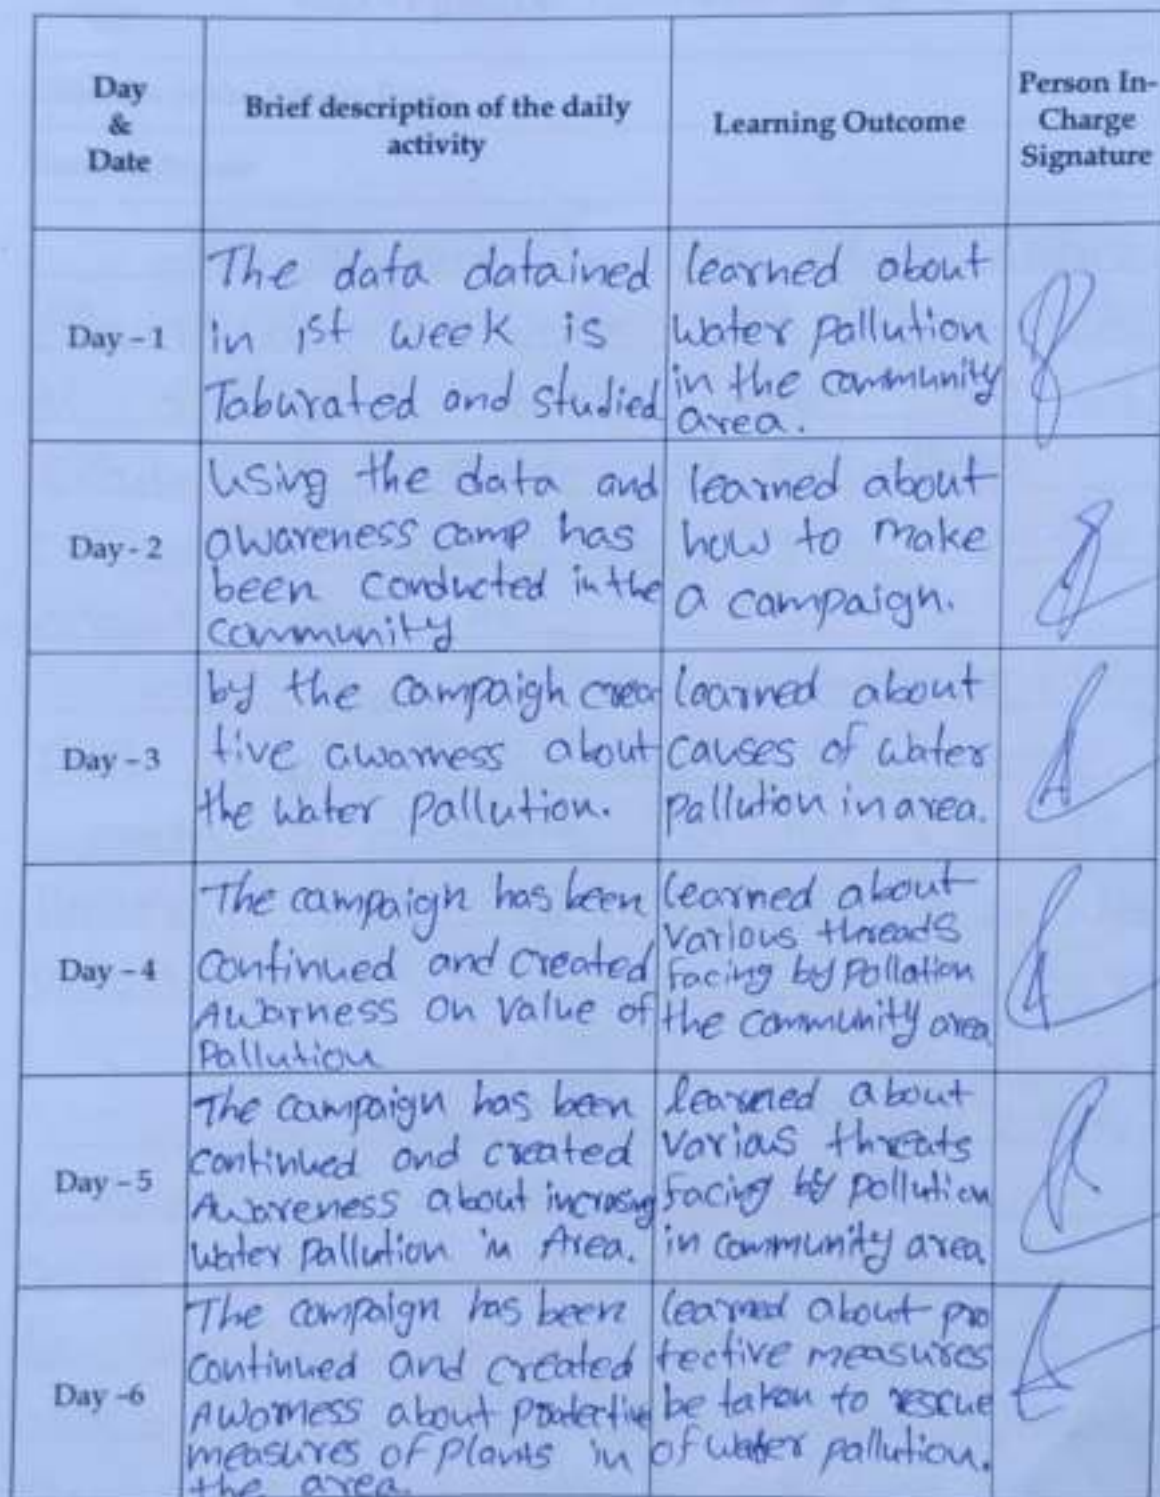 Day
&
Date
Brief description of the daily
activity
Learning Outcome
Person In-
Charge
Signature
Day – 1
The data datained
in 1st week is
Taburated and studied
learned about
water pallution
in the community
area.
Day - 2
Using the data and
awareness camp has
been conducted in the
community
learned about
how to make
a campaign.
Day – 3
by the campaigh crea
tive awarness about
the water pallution.
learned about
causes of water
pallution in area.
Day – 4
The campaign has been
continued and created
Awarness on value of
Pallution
learned about
various threads
facing by pollation
the community area
Day – 5
The campaign has been
continued and created
Awareness about incrasing
water pallution in Area.
learned about
various threats
facing by pollution
in community area
Day -6
The campaign has been
continued and created
Awarness about protective
measures of plants in
the area.
learned about pro
tective measures
be taken to rescue
of water pallution.